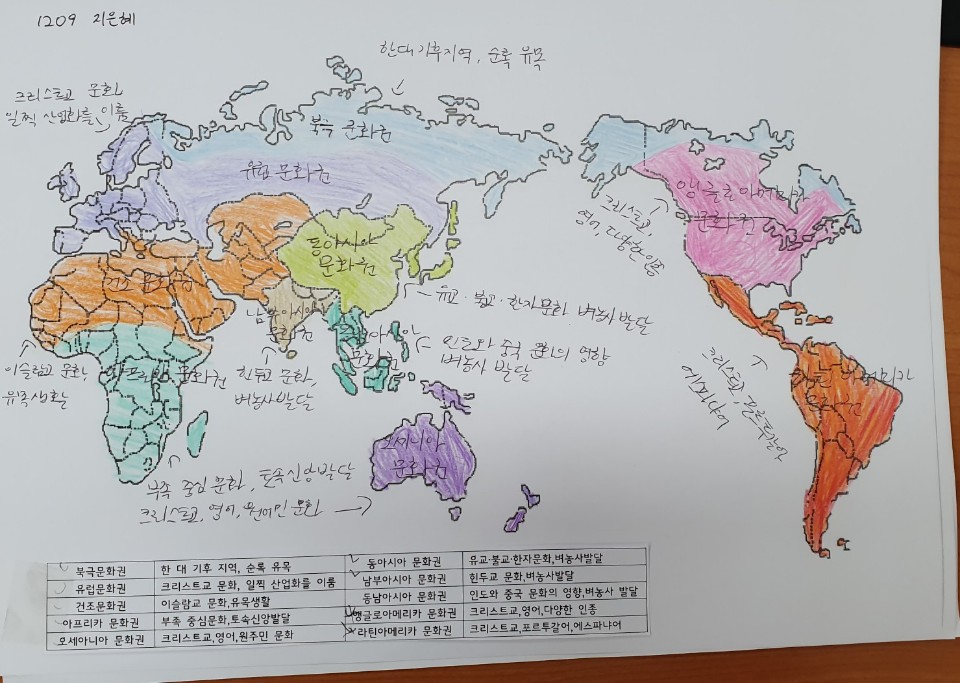 1209 지은혜
한대기후지역, 순록 유목
크리스트교 문화,
일찍 산업화를 이룸
북극 문화권
유럽 문화권
앵글로아메리카
문화권
크리스트교,
영어, 다양한 인종
동아시아
문화권
건조 문화권
남부아시아
문화권
유교·불교·한자문화 벼농사발달
동남아시아
문화권
인도와 중국 문화의 영향
벼농사 발달
이슬람교 문화,
유목생활
아프리카 문화권
힌두교 문화,
벼농사발달
크리스트교, 포르투갈어
에스파냐어
라틴아메리카
문화권
오세아니아
문화권
부족 중심문화, 토속신앙발달
크리스트교, 영어, 원주민 문화
북극문화권 한 대 기후 지역, 순록 유목 동아시아 문화권 유교·불교·한자문화,벼농사발달
유럽문화권 크리스트교 문화, 일찍 산업화를 이룸 남부아시아 문화권 힌두교 문화,벼농사발달
건조문화권 이슬람교 문화,유목생활 동남아시아 문화권 인도와 중국 문화의 영향,벼농사 발달
아프리카 문화권 부족 중심문화,토속신앙발달 앵글로아메리카 문화권 크리스트교,영어,다양한 인종
오세아니아 문화권 크리스트교,영어,원주민 문화 라틴아메리카 문화권 크리스트교,포르투갈어,에스파냐어